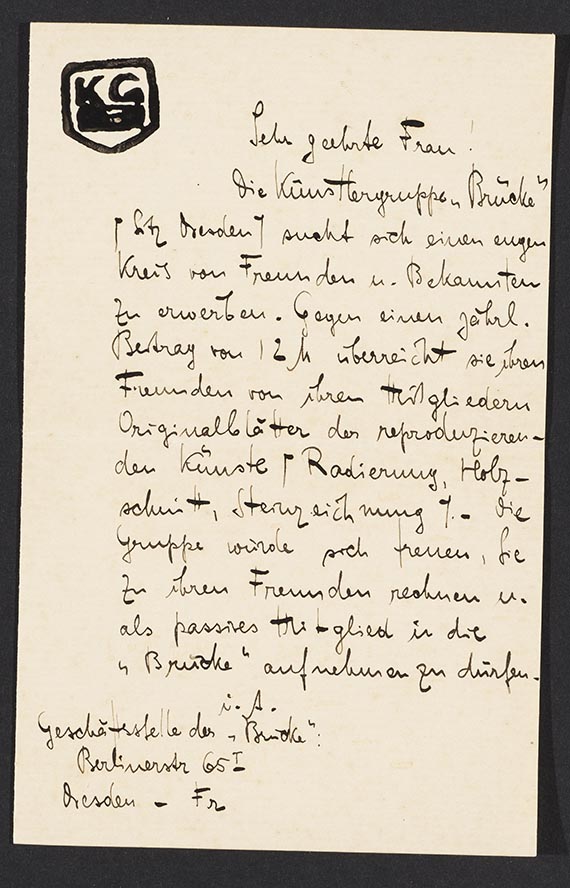 KG
B
Sehr geehrte Frau!
Die Künstlergruppe „Brücke"
[Sitz Dresden] sucht sich einen engen
Kreis von Freunden u. Bekannten
zu erwerben. Gegen einen jährl.
Beitrag von 12 M überreicht sie ihren
Freunden von ihren Mitgliedern
Originalblätter der reproduzieren-
den Künste [Radierung, Holz-
schnitt, Steinzeichnung]. - Die
Gruppe würde sich freuen, Sie
zu ihren Freunden rechnen u.
als passives Mitglied in die
„Brücke" aufnehmen zu dürfen.
i. A.
Geschäftsstelle der „Brücke":
Berlinerstr 65I
Dresden - Fr